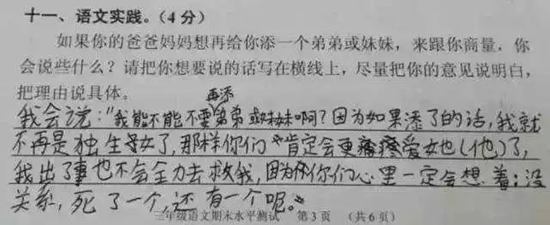 十一、语文实践。(4分)
如果你的爸爸妈妈想再给你添一个弟弟或妹妹，来跟你商量，你
会说些什么？请把你想要说的话写在横线上，尽量把你的意见说明白，
把理由说具体。
我会说："我能不能不要再添弟弟或妹妹啊？因为如果添了的话，我就
不再是独生子女了，那样你们肯定会更疼爱她（他）了，
我出了事也不会全力去救我，因为你们心里一定会想着：没
关系，死了一个，还有一个呢。"
三年级语文期末水平测试 第3页 （共6页）